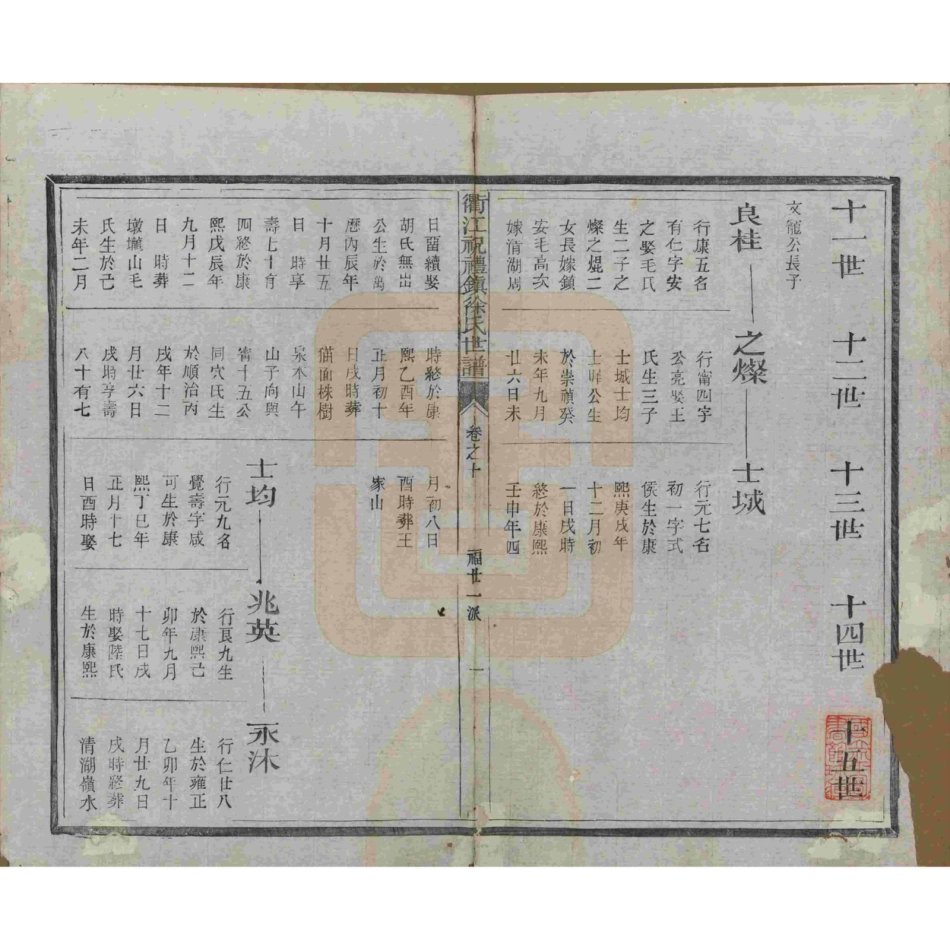 十一世
十二世
十三世
十四世
十五世
文寵公長子
良桂
行康五名
有仁字安
之娶毛氏
生二子之
燦之焜二
女長嫁鎮
安毛高次
嫁淸湖周
之燦
行甯四字
公亮娶王
氏生三子
士城士均
公生
於崇禎癸
未年九月
廿六日未
士城
行元七名
初一字式
侯生於康
熙庚戌年
十二月初
一日戌時
終於康熙
壬申年四
衢江祝禮鎮徐氏世譜
卷之十
福世一派
一
日酉續娶
胡氏無出
公生於萬
曆丙辰年
十月廿五
日 時享
壽七十有
四終於康
熙戊辰年
九月十二
日 時葬
墩塘山毛
氏生於己
未年二月
時終於康
熙乙酉年
正月初十
日戌時葬
貓面株樹
泉本山午
山子向與
甯十五公
同穴氏生
於順治丙
戌年十二
月廿六日
戌時享壽
八十有七
月初八日
酉時葬王
家山
士均
行元九名
覺壽字咸
可生於康
熙丁巳年
正月十七
日酉時娶
兆英
行良九生
於康熙己
卯年九月
十七日戌
時娶陸氏
生於康熙
永沐
行仁廿八
生於雍正
乙卯年十
月廿九日
戌時終葬
清湖嶺水